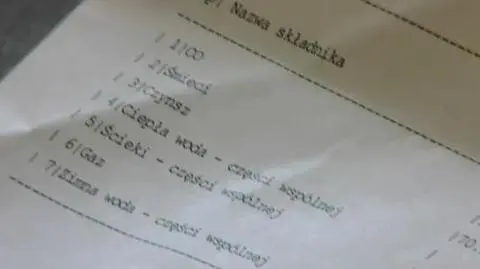 Nazwa składnika
| 1|CO
| 2|Śmieci
| 3|Czynsz
| 4|Ciepła woda - części wspólnej
| 5|Ścieki - części wspólnej
| 6|Gaz
| 7|Zimna woda - części wspólnej